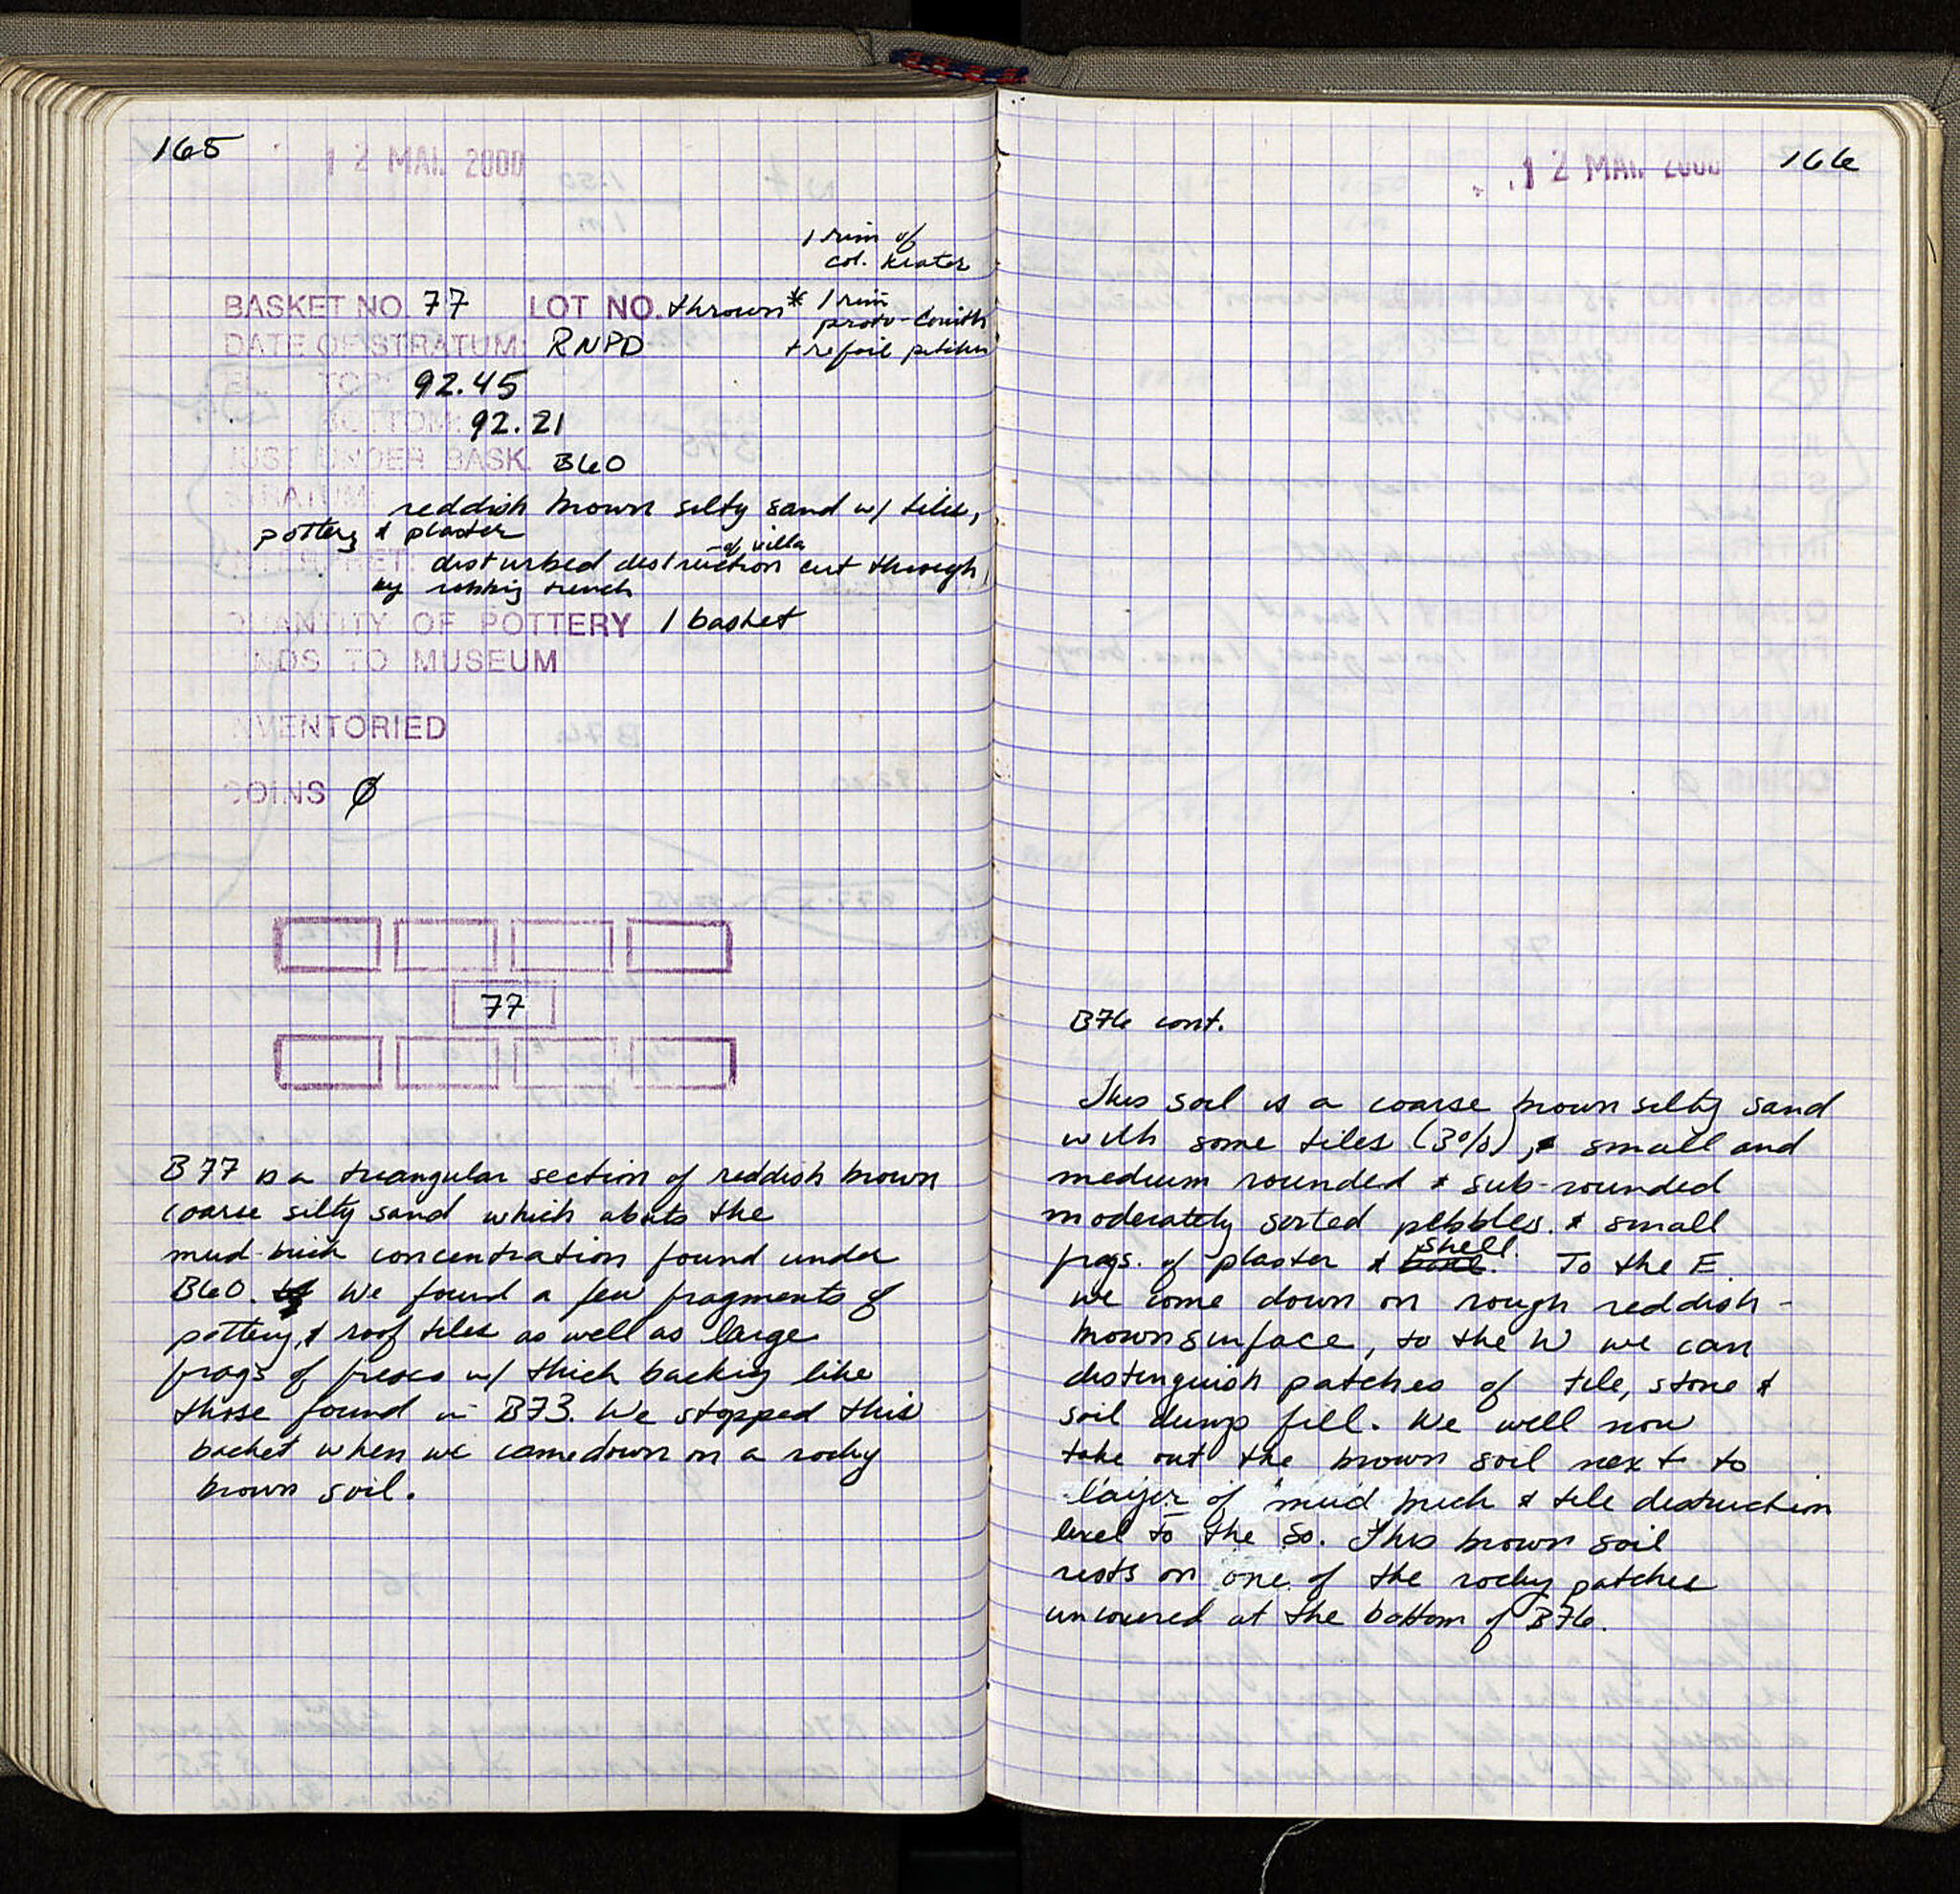 165
12 MAI. 2000
1 rim of
col. krater
BASKET NO. 77 LOT NO. thrown * 1 rim
proto-Corinth
DATE OF STRATUM: RNPD
trefoil pitcher
EL. TOP: 92.45
BOTTOM: 92.21
JUST UNDER BASK. B60
STRATUM: reddish brown silty sand w/ tiles,
pottery & plaster
of villa
INTERPRET: disturbed destruction cut through
by robbing trench
QUANTITY OF POTTERY 1 basket
FINDS TO MUSEUM
INVENTORIED
COINS Ø
77
B77 is a triangular section of reddish brown
coarse silty sand which abuts the
mud-brick concentration found under
B60. We found a few fragments of
pottery, & roof tiles as well as large
frags of fresco w/ thick backing like
those found in B73. We stopped this
basket when we came down on a rocky
brown soil.
12 MAI. 2000
166
B76 cont.
This soil is a coarse brown silty sand
with some tiles (3%), & small and
medium rounded & sub-rounded
moderately sorted pebbles. & small
frags. of plaster & shell. To the E.
we come down on rough reddish-
brown surface, to the W we can
distinguish patches of tile, stone &
soil dump fill. We will now
take out the brown soil next to
layer of mud brick & tile destruction
level to the So. This brown soil
rests on one of the rocky patches
uncovered at the bottom of B76.